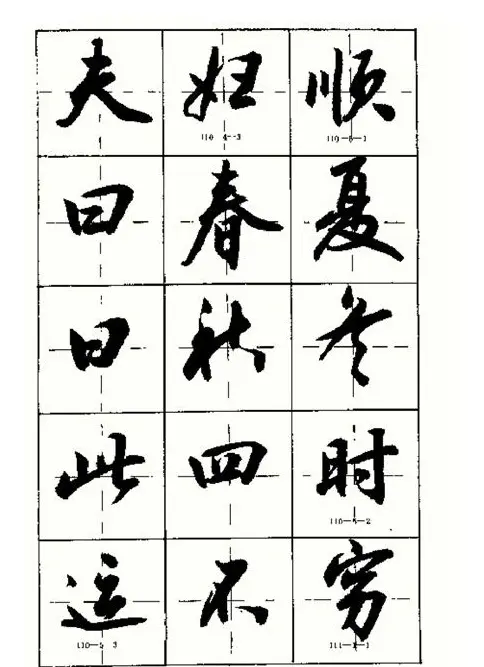 夫妇顺
曰春夏
曰秋冬
此四时
运不穷
110-4-3
110-5-1
110-5-2
110-5-3
111-1-1